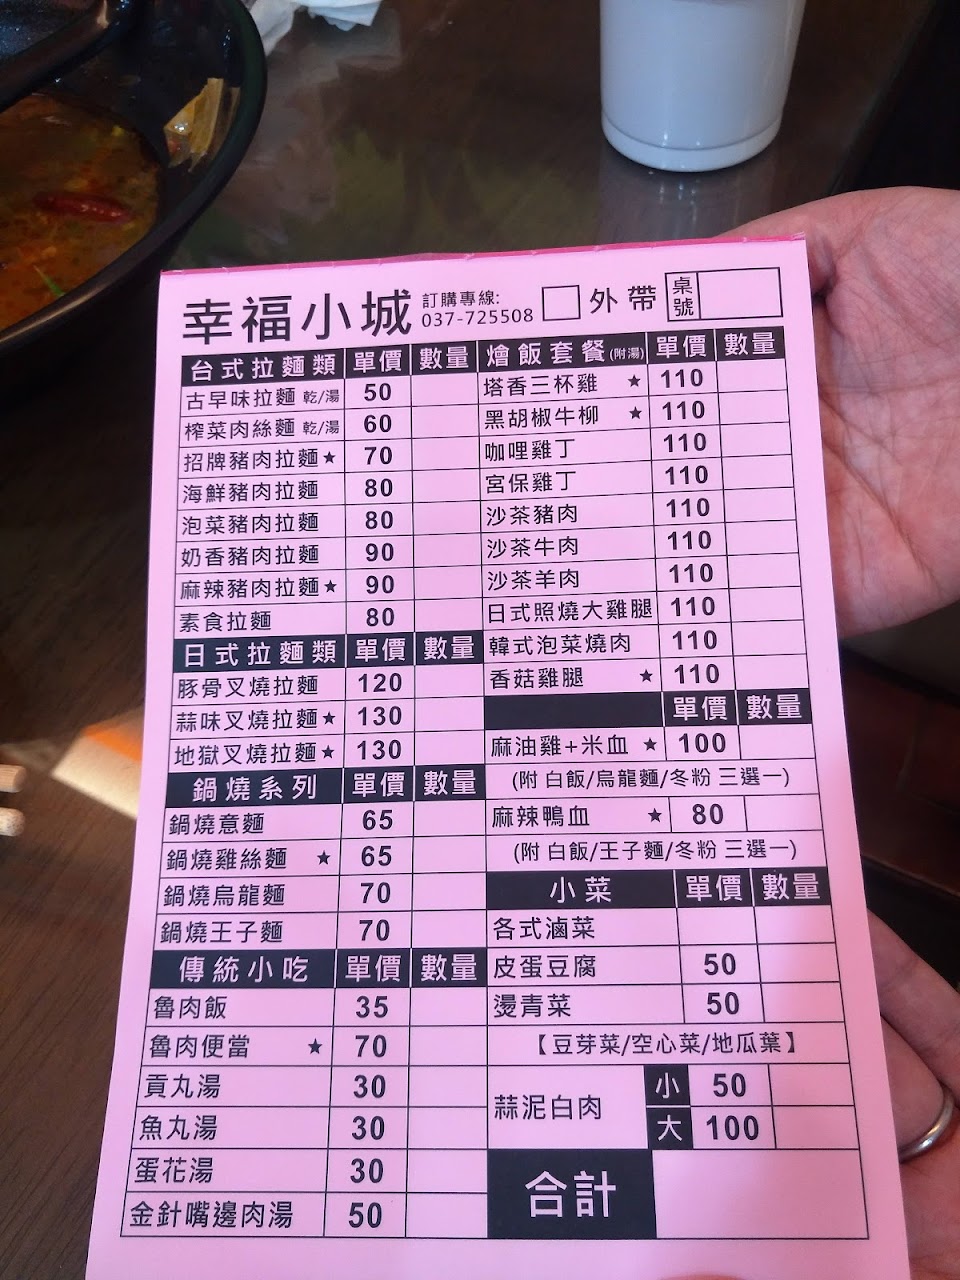 幸福小城
訂購專線:
037-725508
外帶
桌號
台式拉麵類 單價 數量
古早味拉麵 乾/湯 50
榨菜肉絲麵 乾/湯 60
招牌豬肉拉麵★ 70
海鮮豬肉拉麵 80
泡菜豬肉拉麵 80
奶香豬肉拉麵 90
麻辣豬肉拉麵★ 90
素食拉麵 80
日式拉麵類 單價 數量
豚骨叉燒拉麵 120
蒜味叉燒拉麵★ 130
地獄叉燒拉麵★ 130
鍋燒系列 單價 數量
鍋燒意麵 65
鍋燒雞絲麵 ★ 65
鍋燒烏龍麵 70
鍋燒王子麵 70
傳統小吃 單價 數量
魯肉飯 35
魯肉便當 ★ 70
貢丸湯 30
魚丸湯 30
蛋花湯 30
金針嘴邊肉湯 50
燴飯套餐(附湯) 單價 數量
塔香三杯雞 ★ 110
黑胡椒牛柳 ★ 110
咖哩雞丁 110
宮保雞丁 110
沙茶豬肉 110
沙茶牛肉 110
沙茶羊肉 110
日式照燒大雞腿 110
韓式泡菜燒肉 110
香菇雞腿 ★ 110
單價 數量
麻油雞+米血 ★ 100
(附 白飯/烏龍麵/冬粉 三選一)
麻辣鴨血 ★ 80
(附 白飯/王子麵/冬粉 三選一)
小菜 單價 數量
各式滷菜
皮蛋豆腐 50
燙青菜 50
【豆芽菜/空心菜/地瓜葉】
蒜泥白肉 小 50
大 100
合計